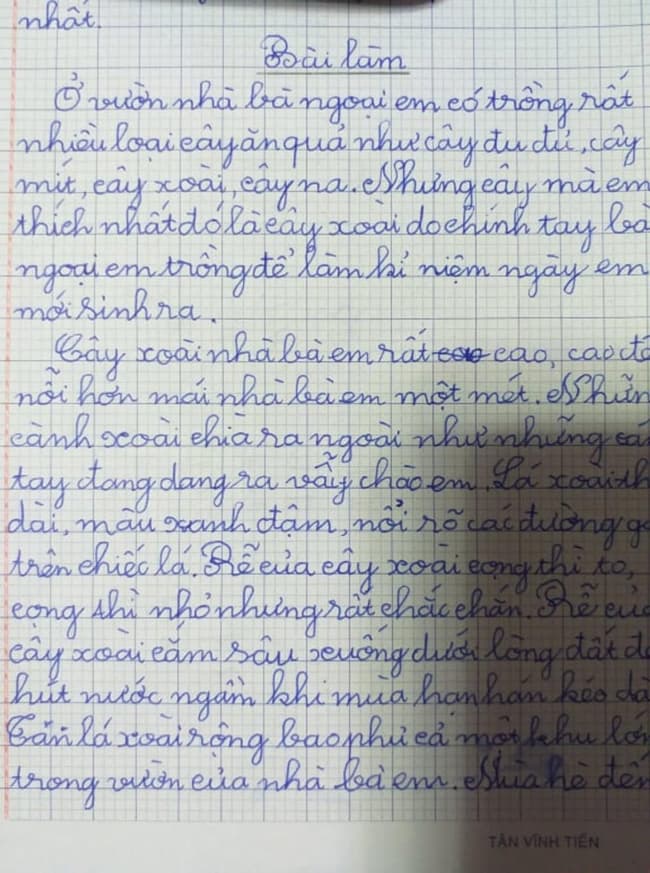 nhất.
Bài làm
Ở vườn nhà bà ngoại em có trồng rất
nhiều loại cây ăn quả như cây đu đủ, cây
mít, cây xoài, cây na. Nhưng cây mà em
thích nhất đó là cây xoài do chính tay bà
ngoại em trồng để làm kỉ niệm ngày em
mới sinh ra.
Cây xoài nhà bà em rất cao, cao
nỗi hơn mái nhà bà em một mét.
cành xoài chìa ra ngoài như những
tay đang dang ra vẫy chào em. Lá xoài
dài, màu xanh đậm, nổi rõ các đường
trên chiếc lá. Rễ của cây xoài cọng thì to,
cọng thì nhỏ nhưng rất chắc chắn. Rễ
cây xoài cắm sâu xuống dưới lòng đất
hút nước ngầm khi mùa hạn hán kéo
Tán lá xoài rộng bao phủ cả một khu
trong vườn của nhà bà em. Mùa hè đến
TÂN VĨNH TIẾN